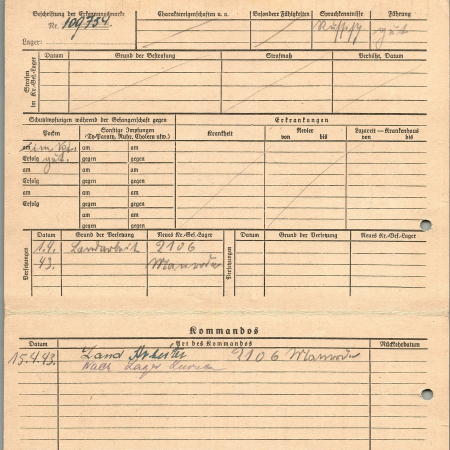 Beschriftung der Erkennungsmarke
Nr. 109734
Lager:
Charaktereigenschaften u. a.
Besondere Fähigkeiten
Sprachkenntnisse
Führung
gut
Strafen im Kr.-Gef.-Lager
Datum Grund der Bestrafung Strafmaß Verbüßt, Datum
Schutzimpfungen während der Gefangenschaft gegen
Erkrankungen
Pocken
Sonstige Impfungen (Ty-Paraty, Ruhr, Cholera usw.)
Krankheit
Revier
von bis
Lazarett — Krankenhaus
von bis
am am
Erfolg gut. gegen gegen
am am am
Erfolg gegen gegen
am am am
Erfolg gegen gegen
am am
gegen gegen
Versetzungen
Datum Grund der Versetzung Neues Kr.-Gef.-Lager
Versetzungen
Datum Grund der Versetzung Neues Kr.-Gef.-Lager
1.4. Landarbeit 2106
43.
Kommandos
Datum Art des Kommandos Rückkehrdatum
15.4.43. Land Arbeiter 2106
Nach Lager